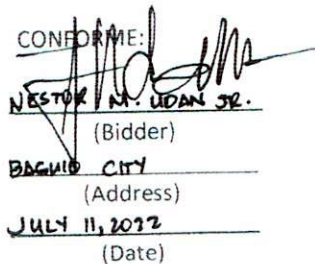 CONFORME:
NESTOR M. UDAN JR.
(Bidder)
BAGUIO CITY
(Address)
JULY 11, 2022
(Date)